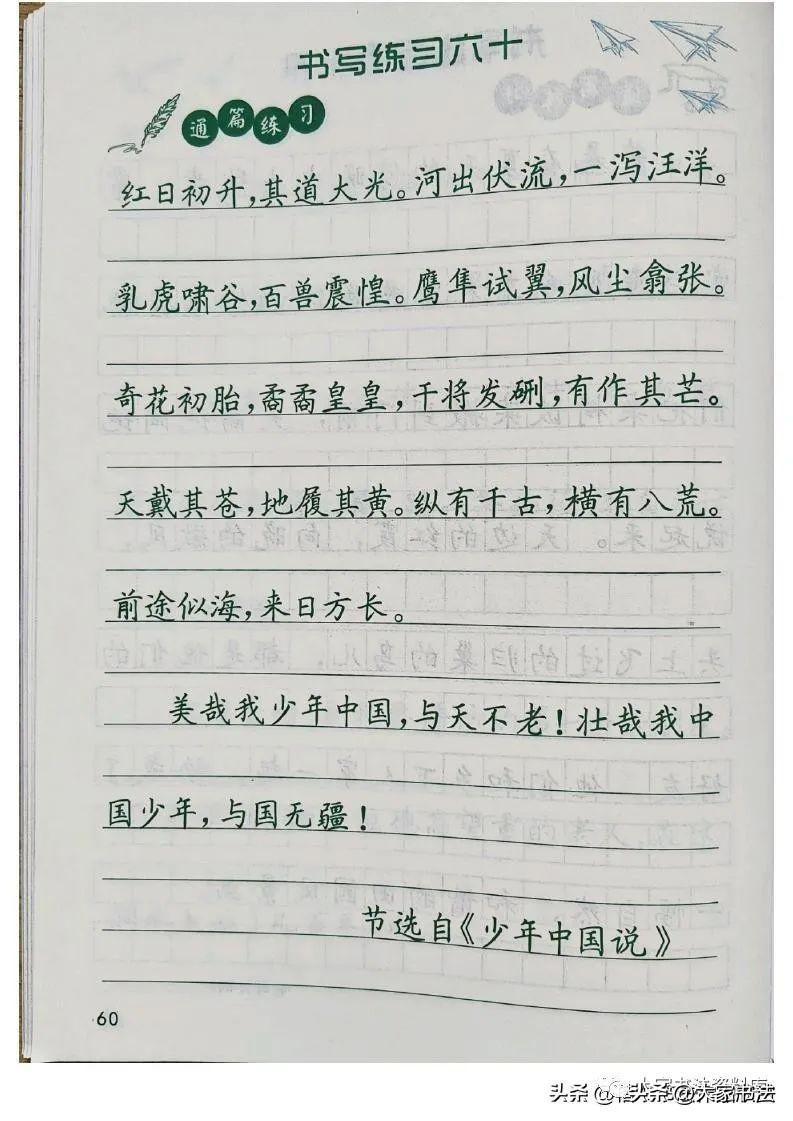 书写练习六十
通篇练习
红日初升，其道大光。河出伏流，一泻汪洋。
乳虎啸谷，百兽震惶。鹰隼试翼，风尘翕张。
奇花初胎，矞矞皇皇，干将发硎，有作其芒。
天戴其苍，地履其黄。纵有千古，横有八荒。
前途似海，来日方长。
美哉我少年中国，与天不老！壮哉我中
国少年，与国无疆！
节选自《少年中国说》
60
头条@大家书法